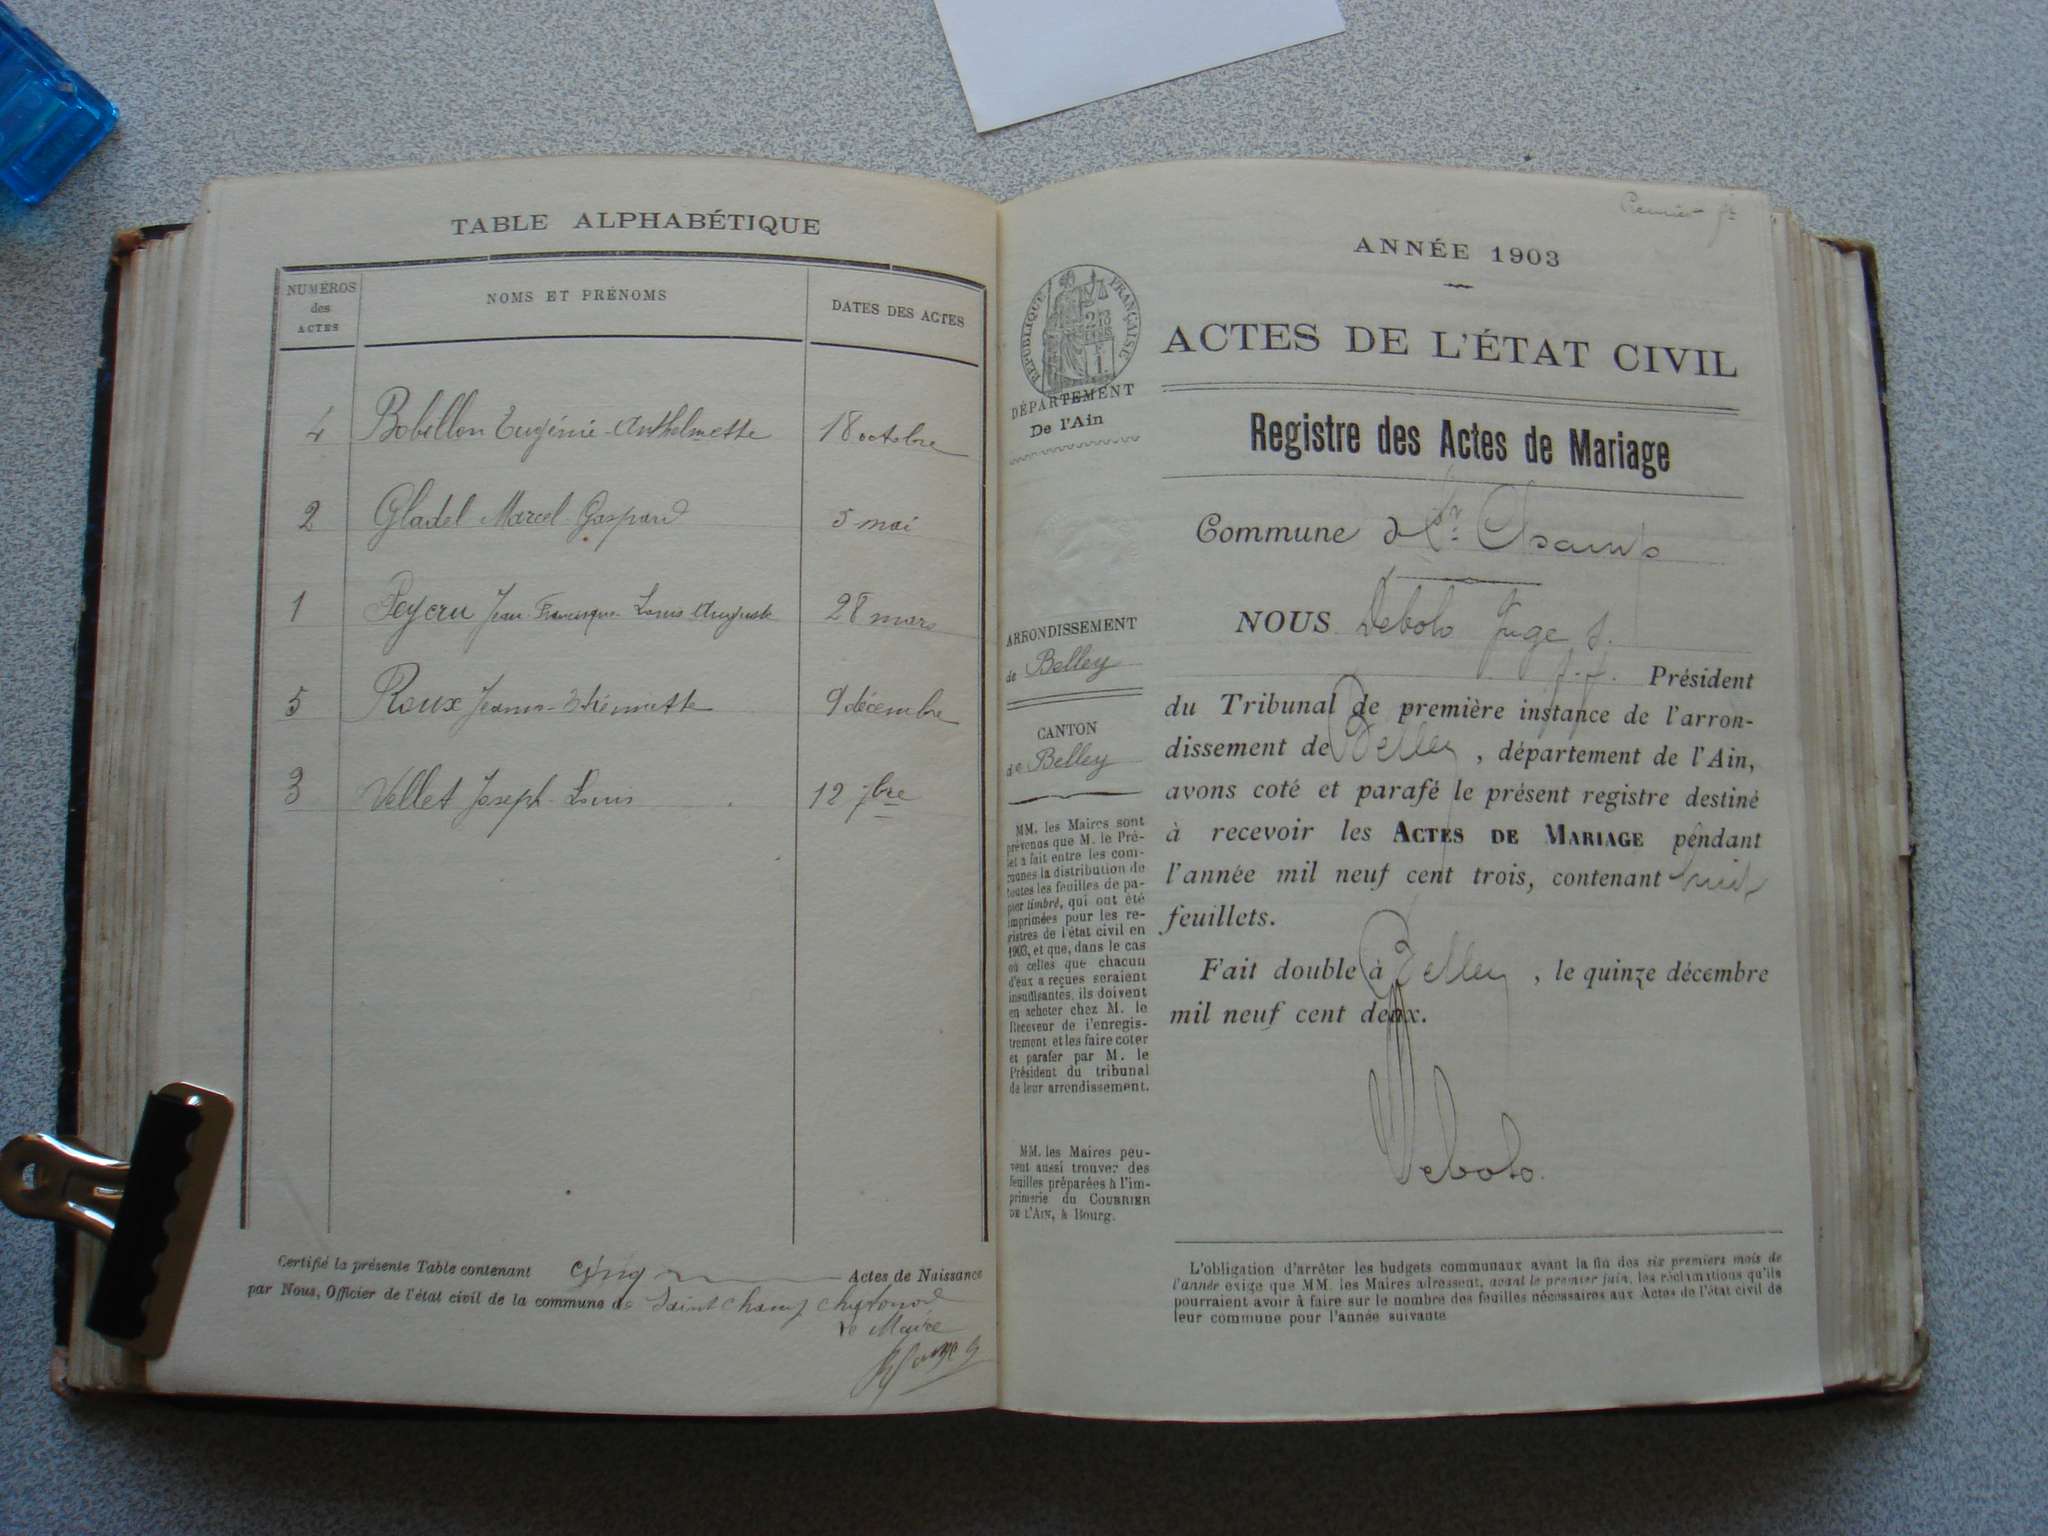 TABLE ALPHABÉTIQUE
NUMÉROS
des
ACTES
NOMS ET PRÉNOMS
DATES DES ACTES
4 Bobillon Eugénie-Anthelmette 18 octobre
2 Gladel Marcel-Gaspard 5 mai
1 Peycru Jean-Francisque-Louis Auguste 28 mars
5 Roux Jeanne-Stéphanette 9 décembre
3 Vellet Joseph-Louis 12 7bre
Certifié la présente Table contenant cinq Actes de Naissance
par Nous, Officier de l'état civil de la commune de Saint Champ Chatonod
Le Maire
Premier ft
ANNÉE 1903
RÉPUBLIQUE FRANÇAISE
ACTES DE L'ÉTAT CIVIL
DÉPARTEMENT
De l'Ain
Registre des Actes de Mariage
Commune de St Champ
ARRONDISSEMENT
de Belley
CANTON
de Belley
MM. les Maires sont
prévenus que M. le Pré-
fet a fait entre les com-
munes la distribution de
toutes les feuilles de pa-
pier timbré, qui ont été
imprimées pour les re-
gistres de l'état civil en
1903, et que, dans le cas
où celles que chacun
d'eux a reçues seraient
insuffisantes, ils doivent
en acheter chez M. le
Receveur de l'enregis-
trement et les faire coter
et parafer par M. le
Président du tribunal
de leur arrondissement.
MM. les Maires peu-
vent aussi trouver des
feuilles préparées à l'im-
primerie du COURRIER
DE L'AIN, à Bourg.
NOUS Debolo Juge s.
f.f. Président
du Tribunal de première instance de l'arron-
dissement de Belley, département de l'Ain,
avons coté et parafé le présent registre destiné
à recevoir les ACTES DE MARIAGE pendant
l'année mil neuf cent trois, contenant huit
feuillets.
Fait double à Belley, le quinze décembre
mil neuf cent deux.
Debolo.
L'obligation d'arrêter les budgets communaux avant la fin des six premiers mois de
l'année exige que MM. les Maires adressent, avant le premier juin, les réclamations qu'ils
pourraient avoir à faire sur le nombre des feuilles nécessaires aux Actes de l'état civil de
leur commune pour l'année suivante